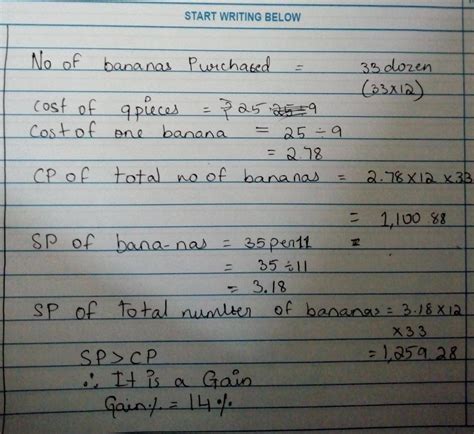 START WRITING BELOW
No of bananas Purchased = 33 dozen
(33×12)
Cost of 9 pieces = ₹ 25. 25=9
Cost of one banana = 25 ÷ 9
= 2.78
CP of total no of bananas = 2.78 × 12 × 33
= 1,100 88
SP of bana-nas = 35 per 11 =
= 35 ÷ 11
= 3.18
SP of total number of bananas = 3.18 × 12
× 33
SP > CP = 1,259 28
∴ It is a Gain
Gain % = 14 %